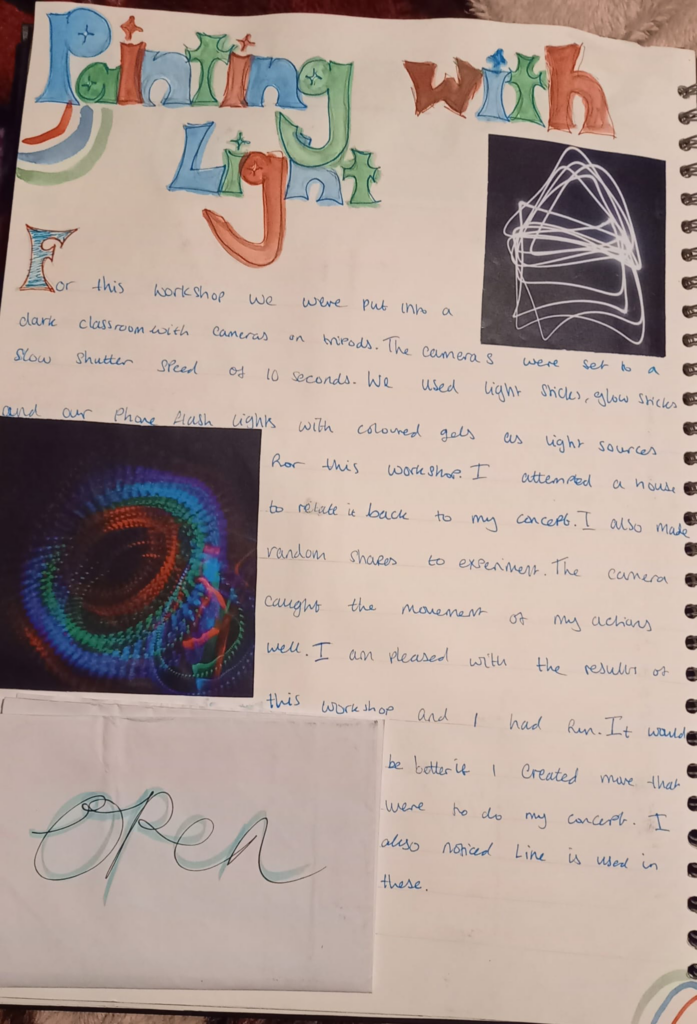 Painting with
Light
For this workshop we were put into a
dark classroom with cameras on tripods. The cameras were set to a
slow shutter speed of 10 seconds. We used light sticks, glow sticks
and our phone flash lights with coloured gels as light sources
for this workshop. I attempted a house
to relate it back to my concept. I also made
random shapes to experiment. The camera
caught the movement of my actions
well. I am pleased with the results of
this workshop and I had fun. It would
be better if I created more that
were to do my concept. I
also noticed Line is used in
these.
open